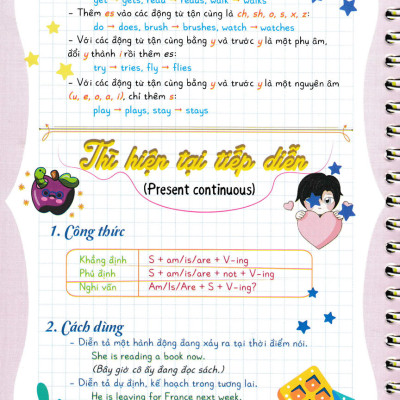 get → gets, read → reads, walk → walks
– Thêm es vào các động từ tận cùng là ch, sh, o, s, x, z:
do → does, brush → brushes, watch → watches
– Với các động từ tận cùng bằng y và trước y là một phụ âm,
đổi y thành i rồi thêm es:
try → tries, fly → flies
– Với các động từ tận cùng bằng y và trước y là một nguyên âm
(u, e, o, a, i), chỉ thêm s:
play → plays, stay → stays
Thì hiện tại tiếp diễn
(Present continuous)
1. Công thức
Khẳng định S + am/is/are + V-ing
Phủ định S + am/is/are + not + V-ing
Nghi vấn Am/Is/Are + S + V-ing?
2. Cách dùng
– Diễn tả một hành động đang xảy ra tại thời điểm nói.
She is reading a book now.
(Bây giờ cô ấy đang đọc sách.)
– Diễn tả dự định, kế hoạch trong tương lai.
He is leaving for France next week.